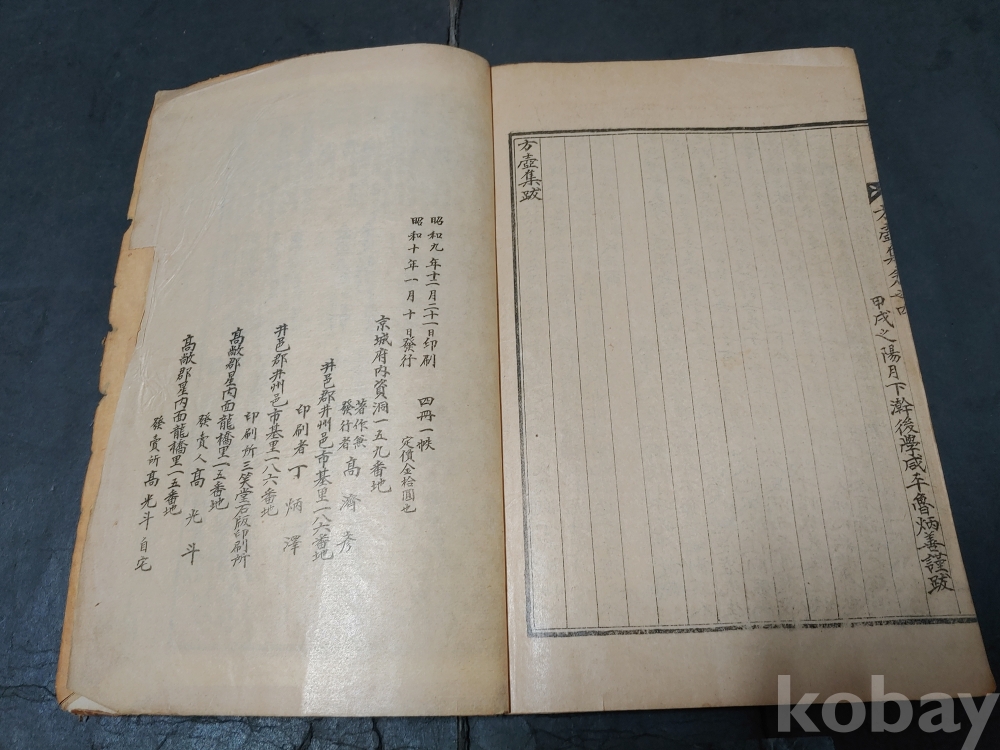 方壺集卷之四
甲戌之陽月下澣後學咸平魯炳善謹跋
方壺集跋
昭和九年十二月二十一日印刷
昭和十年一月十日發行
四冊一帙
定價金拾圓也
京城府內資洞一五九番地
著作兼
發行者 高濟彥
井邑郡井州邑市基里一八六番地
印刷者 丁炳澤
井邑郡井州邑市基里一八六番地
印刷所 三笑堂石版印刷所
高敞郡星內面龍橋里一五番地
發賣人 高光斗
高敞郡星內面龍橋里一五番地
發賣所 高光斗自宅
kobay